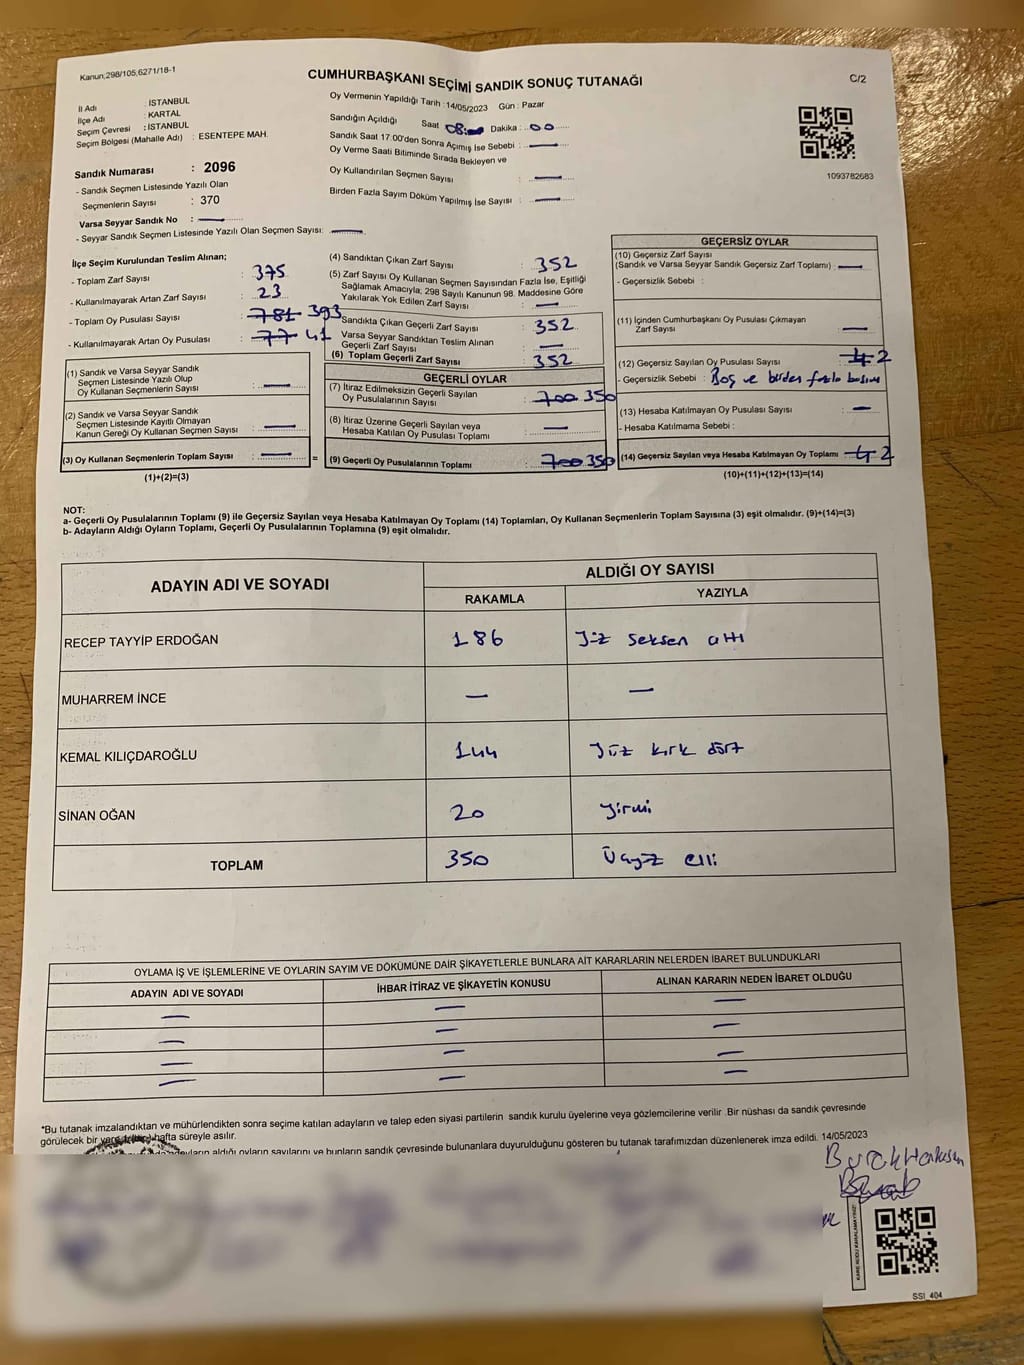 Kanun;298/105,6271/18-1
CUMHURBAŞKANI SEÇİMİ SANDIK SONUÇ TUTANAĞI
C/2
İl Adı : İSTANBUL
İlçe Adı : KARTAL
Seçim Çevresi : İSTANBUL
Seçim Bölgesi (Mahalle Adı) : ESENTEPE MAH.
Sandık Numarası : 2096
- Sandık Seçmen Listesinde Yazılı Olan
Seçmenlerin Sayısı : 370
Varsa Seyyar Sandık No : —
- Seyyar Sandık Seçmen Listesinde Yazılı Olan Seçmen Sayısı: —
Oy Vermenin Yapıldığı Tarih :14/05/2023 Gün : Pazar
Sandığın Açıldığı Saat 08:00 Dakika : 00
Sandık Saat 17:00'den Sonra Açımış İse Sebebi : —
Oy Verme Saati Bitiminde Sırada Bekleyen ve
Oy Kullandırılan Seçmen Sayısı : —
Birden Fazla Sayım Döküm Yapılmış İse Sayısı : —
1093782683
İlçe Seçim Kurulundan Teslim Alınan;
- Toplam Zarf Sayısı : 375
- Kullanılmayarak Artan Zarf Sayısı : 23
- Toplam Oy Pusulası Sayısı : 781 393
- Kullanılmayarak Artan Oy Pusulası : 77 41
(1) Sandık ve Varsa Seyyar Sandık
Seçmen Listesinde Yazılı Olup
Oy Kullanan Seçmenlerin Sayısı : —
(2) Sandık ve Varsa Seyyar Sandık
Seçmen Listesinde Kayıtlı Olmayan
Kanun Gereği Oy Kullanan Seçmen Sayısı : —
(3) Oy Kullanan Seçmenlerin Toplam Sayısı : — =
(1)+(2)=(3)
(4) Sandıktan Çıkan Zarf Sayısı : 352
(5) Zarf Sayısı Oy Kullanan Seçmen Sayısından Fazla İse, Eşitliği
Sağlamak Amacıyla; 298 Sayılı Kanunun 98. Maddesine Göre
Yakılarak Yok Edilen Zarf Sayısı : —
Sandıkta Çıkan Geçerli Zarf Sayısı : 352
Varsa Seyyar Sandıktan Teslim Alınan
Geçerli Zarf Sayısı : —
(6) Toplam Geçerli Zarf Sayısı : 352
GEÇERLİ OYLAR
(7) İtiraz Edilmeksizin Geçerli Sayılan
Oy Pusulalarının Sayısı : 700 350
(8) İtiraz Üzerine Geçerli Sayılan veya
Hesaba Katılan Oy Pusulası Toplamı : —
(9) Geçerli Oy Pusulalarının Toplamı : 700 350
GEÇERSİZ OYLAR
(10) Geçersiz Zarf Sayısı
(Sandık ve Varsa Seyyar Sandık Geçersiz Zarf Toplamı) : —
- Geçersizlik Sebebi :
(11) İçinden Cumhurbaşkanı Oy Pusulası Çıkmayan
Zarf Sayısı : —
(12) Geçersiz Sayılan Oy Pusulası Sayısı : 4 2
- Geçersizlik Sebebi : Boş ve birden fazla basımı
(13) Hesaba Katılmayan Oy Pusulası Sayısı : —
- Hesaba Katılmama Sebebi :
(14) Geçersiz Sayılan veya Hesaba Katılmayan Oy Toplamı : 4 2
(10)+(11)+(12)+(13)=(14)
NOT:
a- Geçerli Oy Pusulalarının Toplamı (9) ile Geçersiz Sayılan veya Hesaba Katılmayan Oy Toplamı (14) Toplamları, Oy Kullanan Seçmenlerin Toplam Sayısına (3) eşit olmalıdır. (9)+(14)=(3)
b- Adayların Aldığı Oyların Toplamı, Geçerli Oy Pusulalarının Toplamına (9) eşit olmalıdır.
ADAYIN ADI VE SOYADI ALDIĞI OY SAYISI
RAKAMLA YAZIYLA
RECEP TAYYİP ERDOĞAN 186 Yüz seksen altı
MUHARREM İNCE — —
KEMAL KILIÇDAROĞLU 144 Yüz kırk dört
SİNAN OĞAN 20 Yirmi
TOPLAM 350 Üçyüz elli
OYLAMA İŞ VE İŞLEMLERİNE VE OYLARIN SAYIM VE DÖKÜMÜNE DAİR ŞİKAYETLERLE BUNLARA AİT KARARLARIN NELERDEN İBARET BULUNDUKLARI
ADAYIN ADI VE SOYADI İHBAR İTİRAZ VE ŞİKAYETİN KONUSU ALINAN KARARIN NEDEN İBARET OLDUĞU
— — —
— — —
— — —
— — —
*Bu tutanak imzalandıktan ve mühürlendikten sonra seçime katılan adayların ve talep eden siyasi partilerin sandık kurulu üyelerine veya gözlemcilerine verilir .Bir nüshası da sandık çevresinde
görülecek bir yere hafta süreyle asılır.
aldığı oyların sayılarını ve bunların sandık çevresinde bulunanlara duyurulduğunu gösteren bu tutanak tarafımızdan düzenlenerek imza edildi. 14/05/2023
Burak
KARE KODU KARALAMAYINIZ!
SSI_404